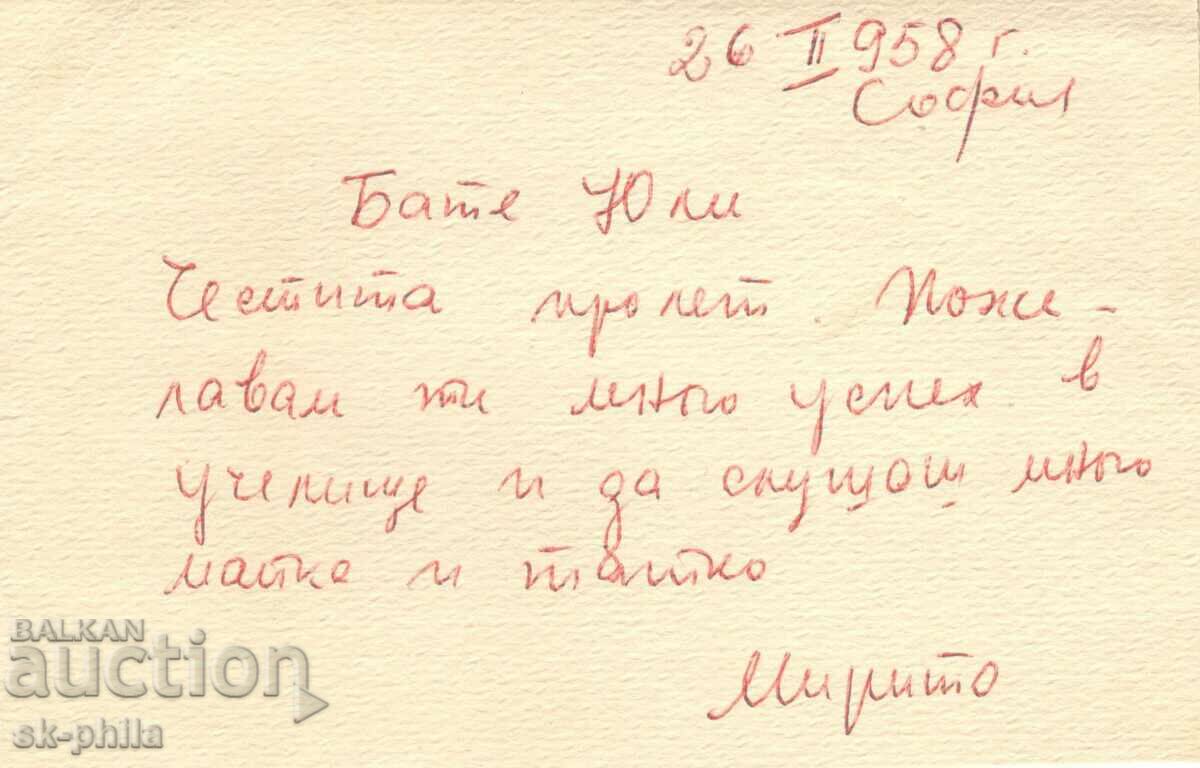 26 II 958 г.
София
Бате Юли
Честита пролет. Поже-
лавам ти много успех в
училище и да слушаш много
майка и татко
Мирито
BALKAN
auction
sk-phila